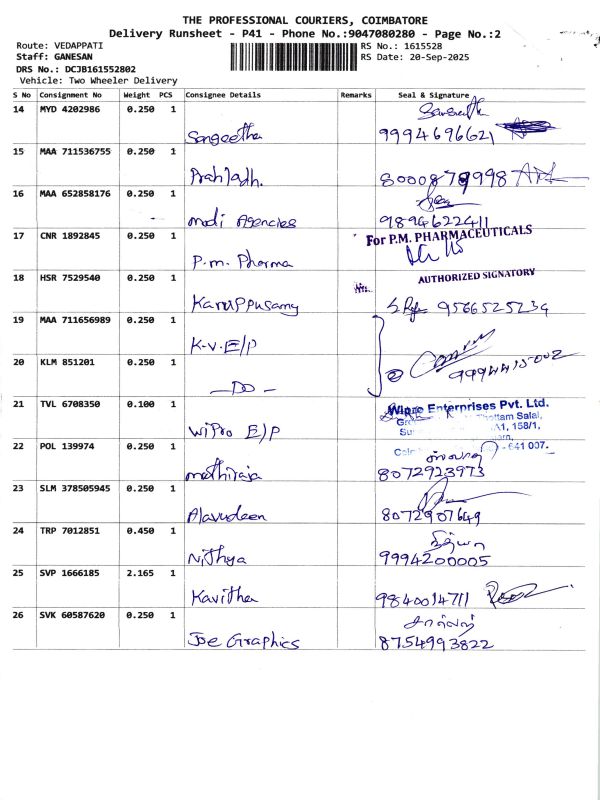 THE PROFESSIONAL COURIERS, COIMBATORE
Delivery Runsheet - P41 - Phone No.:9047080280 - Page No.:2
Route: VEDAPPATI
RS No.: 1615528
Staff: GANESAN
RS Date: 20-Sep-2025
DRS No.: DCJB161552802
Vehicle: Two Wheeler Delivery
S No Consignment No Weight PCS Consignee Details Remarks Seal & Signature
14 MYD 4202986 0.250 1
Sangeetha 9994696621
15 MAA 711536755 0.250 1
Prahladh.
16 MAA 652858176 0.250 1
modi Agencies 9894622411
17 CNR 1892845 0.250 1 For P.M. PHARMACEUTICALS
P.m. Pharma
18 HSR 7529540 0.250 1 AUTHORIZED SIGNATORY
Karuppusamy 9566525234
19 MAA 711656989 0.250 1
K.V. E/P
20 KLM 851201 0.250 1
9994415002
-DO-
21 TVL 6708350 0.100 1 Wipro Enterprises Pvt. Ltd.
Thottam Salai,
158/1,
WiPro E/P
- 641 007.
22 POL 139974 0.250 1
mathiraja 8072923973
23 SLM 378505945 0.250 1
Alavudeen 8072907649
24 TRP 7012851 0.450 1
நித்யா
Nithya 9994200005
25 SVP 1666185 2.165 1
Kavitha 9840014711
26 SVK 60587620 0.250 1
Joe Graphics 8754993822